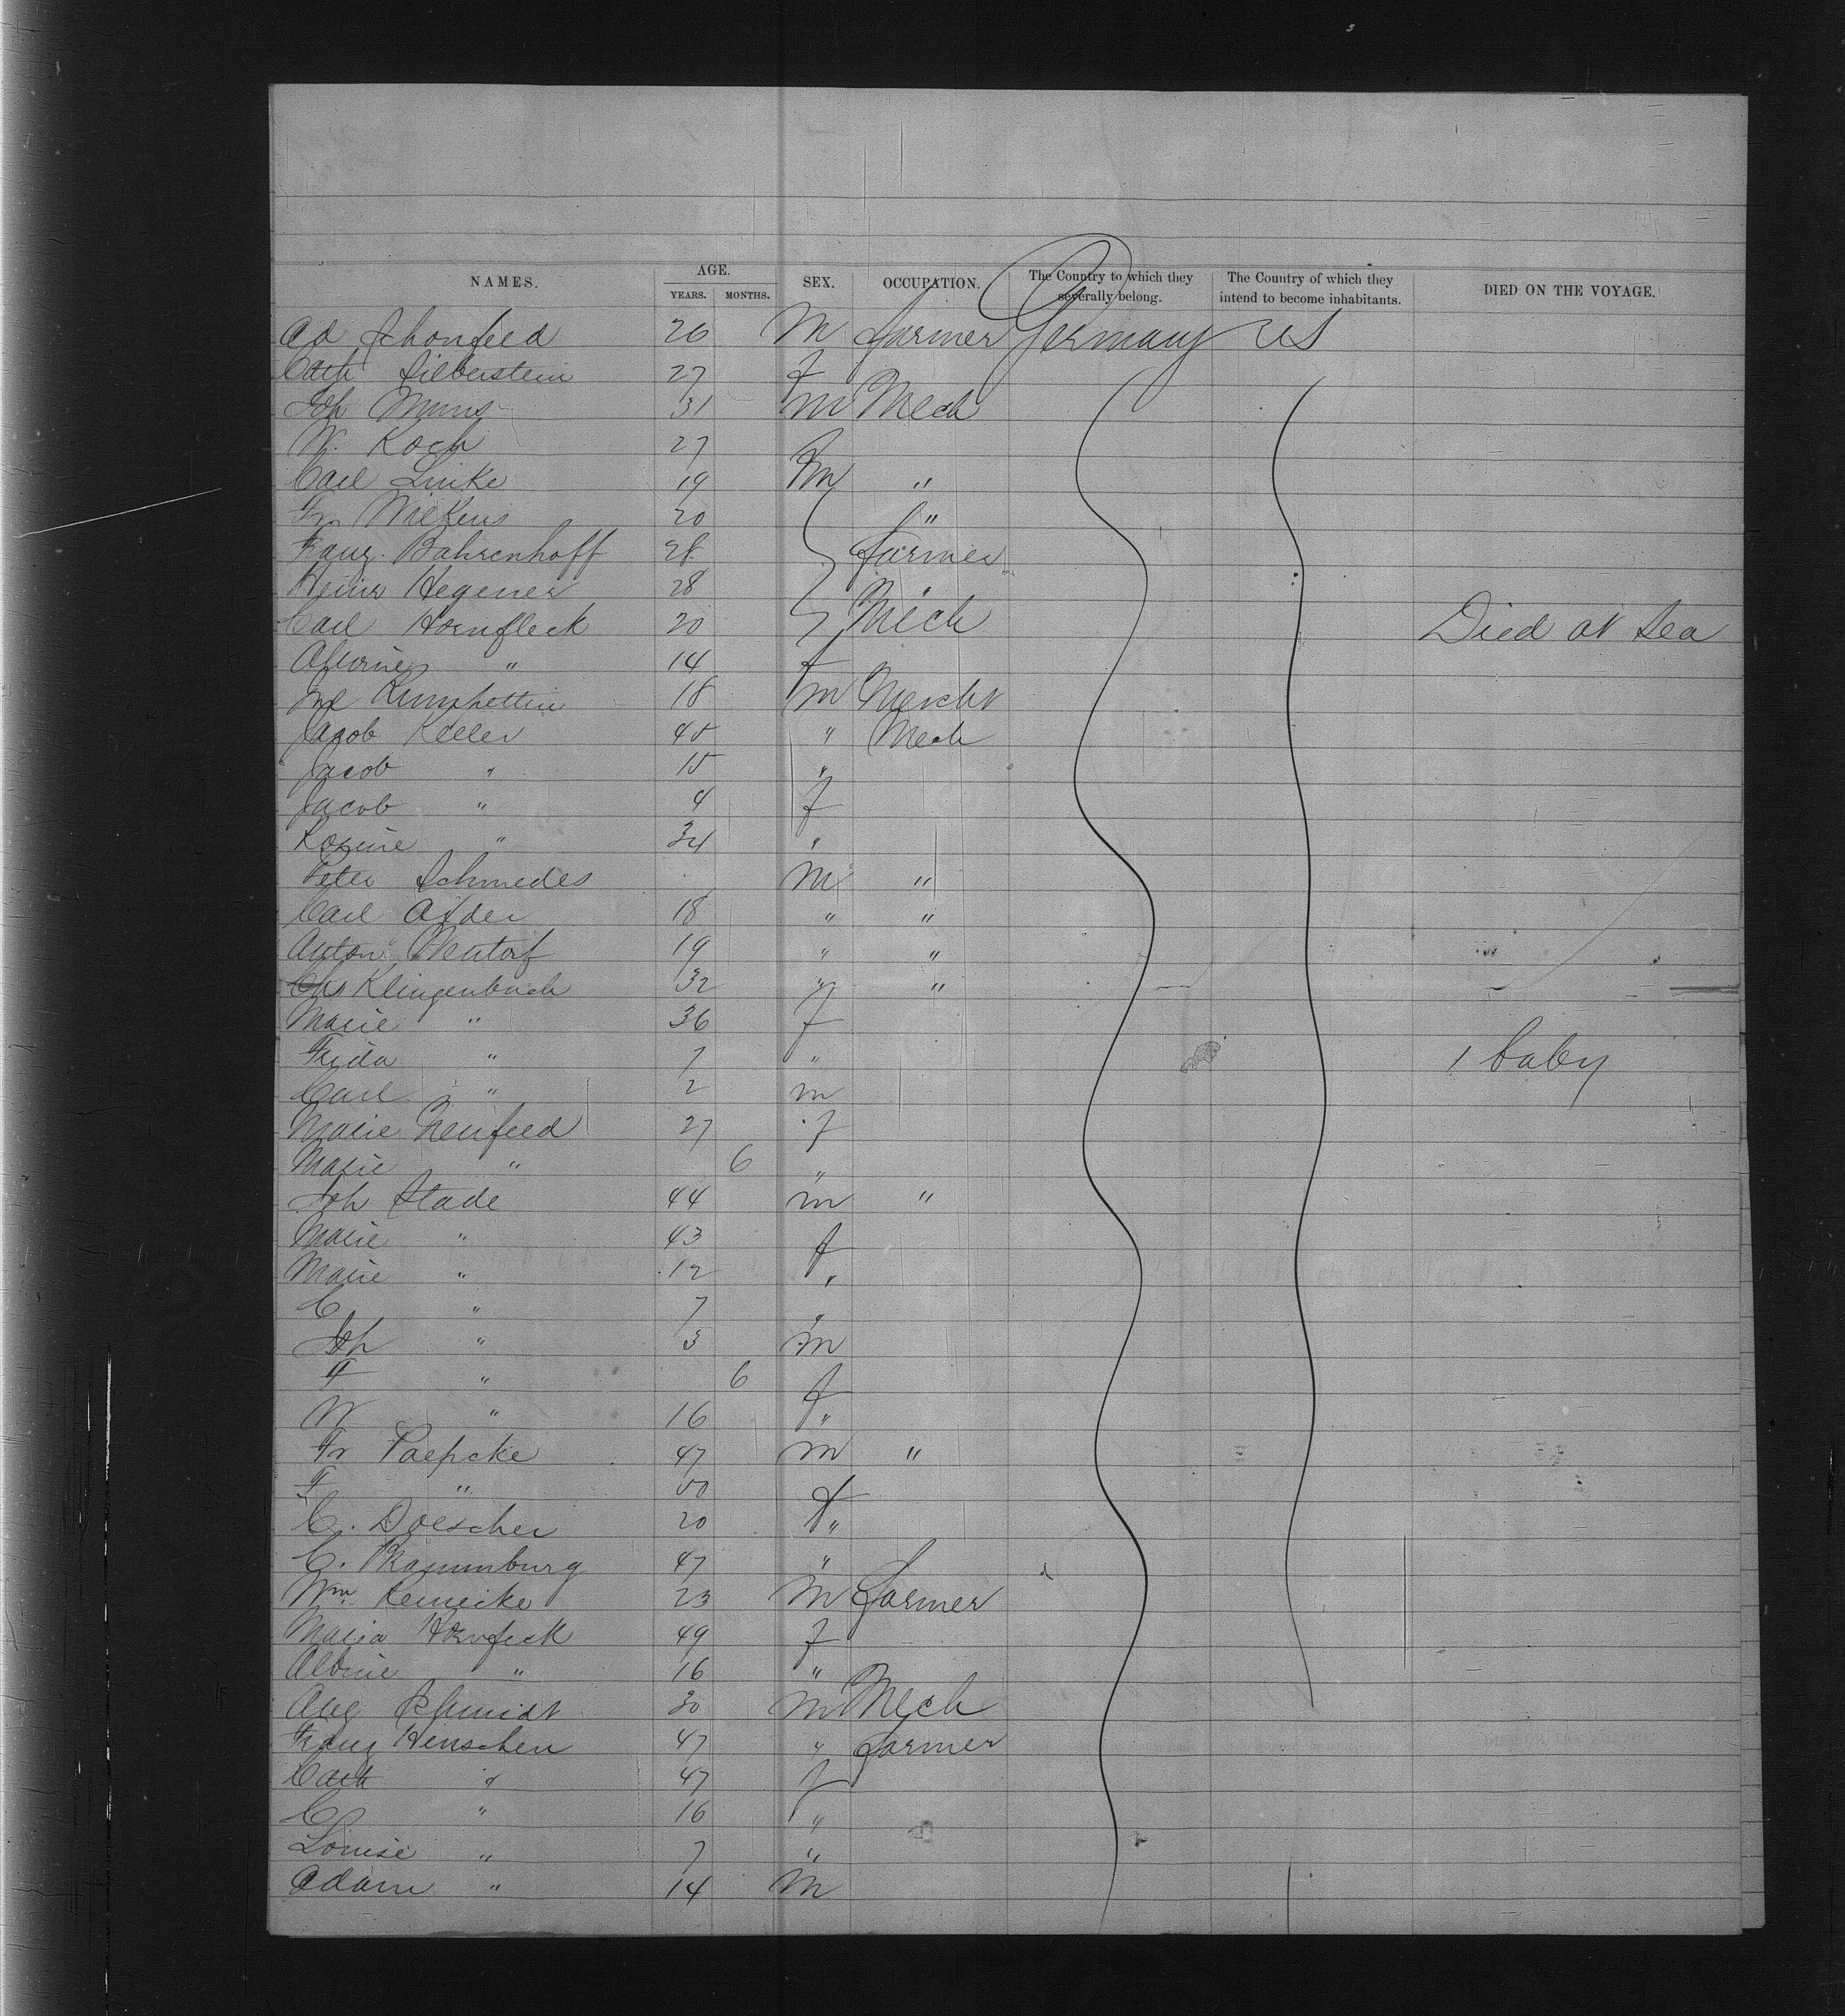 NAMES. AGE. YEARS. MONTHS. SEX. OCCUPATION. The Country to which they severally belong. The Country of which they intend to become inhabitants. DIED ON THE VOYAGE.
Ad Schonfeed 26 M farmer Germany US
Cath Silberstein 27 f
Joh 31 m Mech
W. Koch 27
Carl Linke 19 m "
Fr. Wilkens 20 "
Franz Bahrenhoff 28 farmer
Heinr Hegener 28
Carl Hornfleck 20 Mech Died at Sea
" 14 f
18 m Mercht
Jacob Keller 45 " Mech
Jacob " 15 "
Jacob " 4 f
Rosine " 34 "
Peter Schmedes M "
Carl 18 " "
Anton 19 " "
Chs Klingenbuch 32 " "
Marie " 36 f
Frida " 7 " 1 baby
Carl " 2 m
Marie Neufeed 27 f
Marie " 6 "
Joh Stade 44 m "
Marie " 43 f
Marie " 12 "
C " 7 "
Joh " 3 m
F " 6 f
W " 16 "
Fr Paepcke 47 m "
F " 50 f
C. Doescher 20 "
C. 47 "
Wm Reneike 23 M farmer
Maria Hornfeck 49 f
Albine " 16 "
Aug Schmidt 30 M Mech
Franz Henschen 47 " farmer
Cath " 47 f
C " 16 "
Louise " 7 "
Adam " 14 M